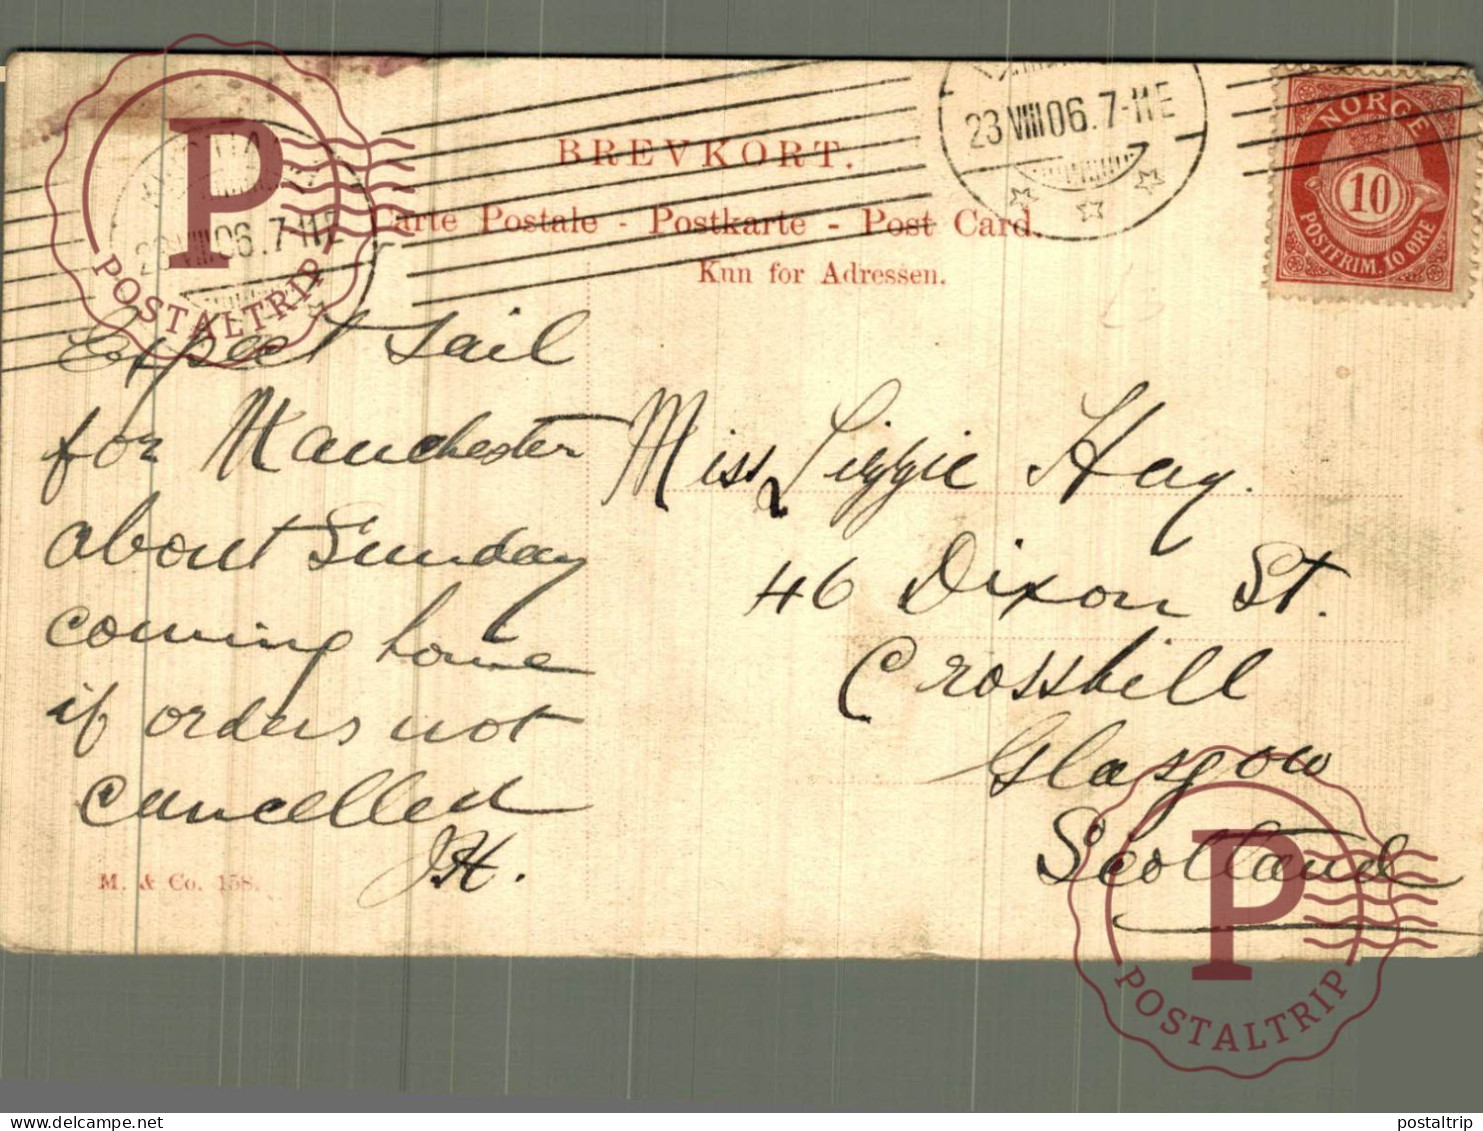 BREVKORT.
Carte Postale - Postkarte - Post Card.
Kun for Adressen.
23 VIII 06. 7-11 E
23 VIII 06. 7-11 E
NORGE
10
POSTFRIM. 10 ØRE
Expect sail
for Manchester
about Sunday
coming home
if orders not
cancelled
J.H.
Miss Lizzie Hay.
46 Dixon St.
Crosshill
Glasgow
Scotland
M. & Co. 158.
P
POSTALTRIP
P
POSTALTRIP
postaltrip